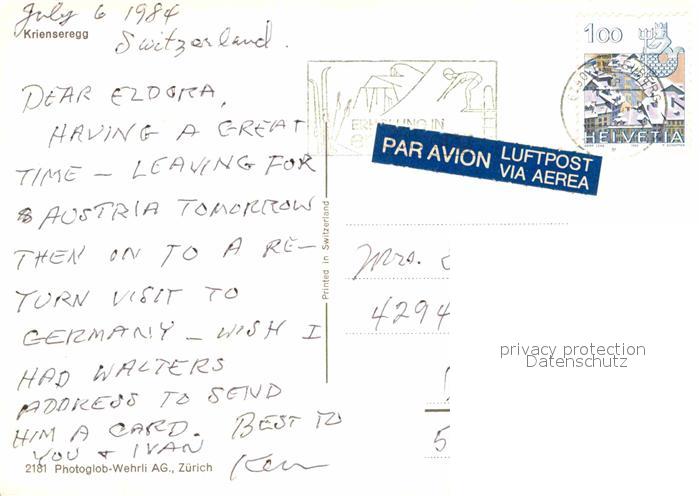 July 6 1984
Krienseregg
Switzerland.
DEAR ELDORA,
HAVING A GREAT
TIME – LEAVING FOR
AUSTRIA TOMORROW
THEN ON TO A RE-
TURN VISIT TO
GERMANY – WISH I
HAD WALTERS
ADDRESS TO SEND
HIM A CARD. BEST TO
YOU + IVAN
Ken
2181 Photoglob-Wehrli AG., Zürich
Printed in Switzerland
ERHOLUNG IN
PAR AVION LUFTPOST
VIA AEREA
100
HELVETIA
Mrs.
4294
5
privacy protection
Datenschutz